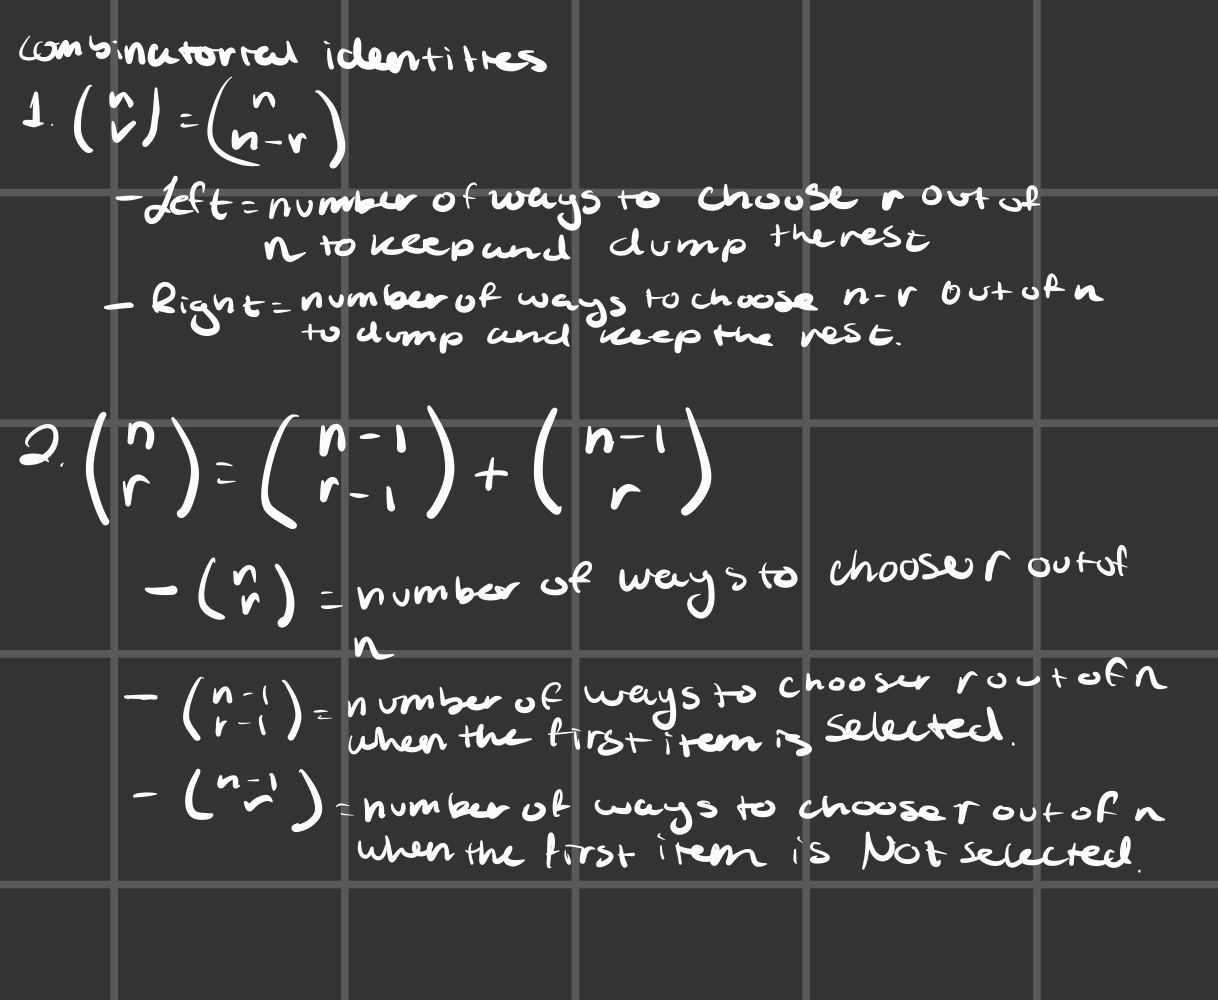 combinatorial identities
1. (n r) = (n n-r)
- Left = number of ways to choose r out of
n to keep and dump the rest
- Right = number of ways to choose n-r out of n
to dump and keep the rest.
2. (n r) = (n-1 r-1) + (n-1 r)
- (n r) = number of ways to chooser r out of
n
- (n-1 r-1) = number of ways to chooser r out of n
when the first item is selected.
- (n-1 r) = number of ways to choose r out of n
when the first item is Not selected.